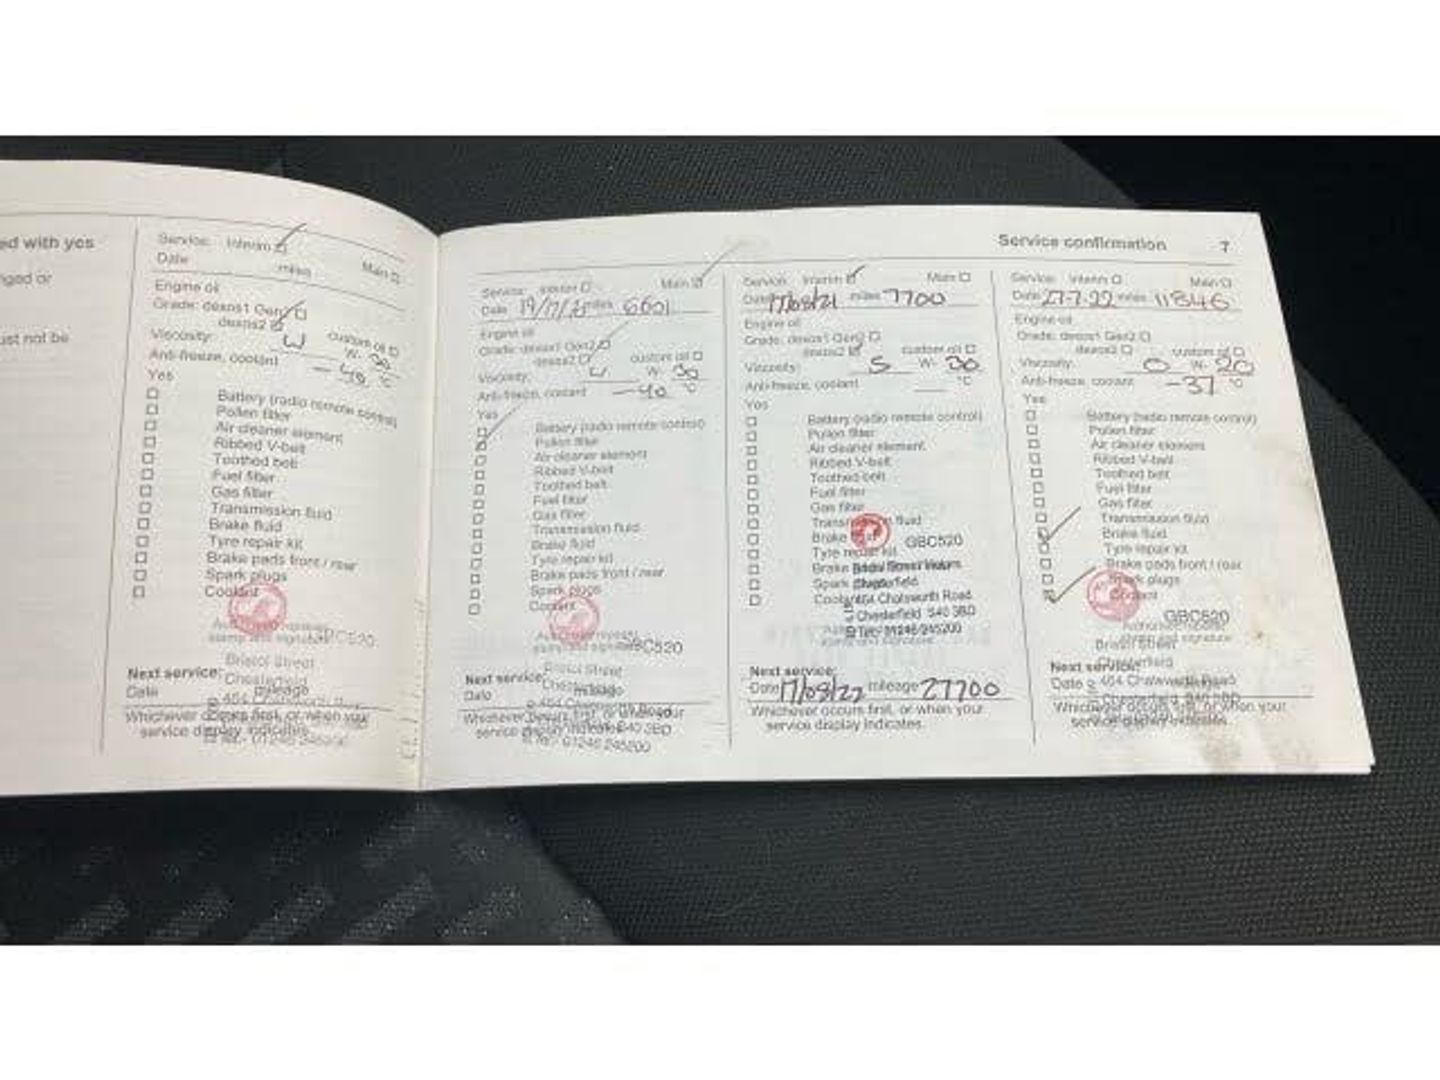 ed with yes
nged or
ust not be
Service: Interim
Date miles Main
Engine oil
Grade: dexos1 Gen2
dexos2
Viscosity: W- 30 custom oil
Anti-freeze, coolant °C
Yes
Battery (radio remote control)
Pollen filter
Air cleaner element
Ribbed V-belt
Toothed belt
Fuel filter
Gas filter
Transmission fluid
Brake fluid
Tyre repair kit
Brake pads front / rear
Spark plugs
Coolant
stamp and signature
Bristol Street
Chesterfield
Next service:
Date mileage
Whichever occurs first, or when your
service display indicates.
Service confirmation 7
Service: Interim Main
Date miles 6601
Engine oil
Grade: dexos1 Gen2
dexos2 custom oil
Viscosity: W- 30
Anti-freeze, coolant -40 °C
Yes
Battery (radio remote control)
Pollen filter
Air cleaner element
Ribbed V-belt
Toothed belt
Fuel filter
Gas filter
Transmission fluid
Brake fluid
Tyre repair kit
Brake pads front / rear
Spark plugs
Coolant
GBC520
Bristol Street
Next service:
Date mileage
Whichever occurs first, or when your
service display indicates.
Tel:- 01246 245200
Service: Interim Main
Date 17/08/21 miles 7700
Engine oil
Grade: dexos1 Gen2
dexos2 custom oil
Viscosity: 5 W- 30
Anti-freeze, coolant °C
Yes
Battery (radio remote control)
Pollen filter
Air cleaner element
Ribbed V-belt
Toothed belt
Fuel filter
Gas filter
Transmission fluid
Brake fluid GBC520
Tyre repair kit
Brake Bristol Street Motors
Spark Chesterfield
Coolant 464 Chatsworth Road
Chesterfield S40 3BD
Tel:- 01246 245200
Next service:
Date 17/08/22 mileage 27700
Whichever occurs first, or when your
service display indicates.
Service: Interim Main
Date 27-7-22 miles 11846
Engine oil
Grade: dexos1 Gen2
dexos2 custom oil
Viscosity: 0 W- 20
Anti-freeze, coolant -37 °C
Yes
Battery (radio remote control)
Pollen filter
Air cleaner element
Ribbed V-belt
Toothed belt
Fuel filter
Gas filter
Transmission fluid
Brake fluid
Tyre repair kit
Brake pads front / rear
Spark plugs
Coolant
GBC520
stamp and signature
Bristol Street
Chesterfield
Next service:
Date 464 Chatsworth Road
Chesterfield S40 3BD
Whichever occurs first, or when your
service display indicates.